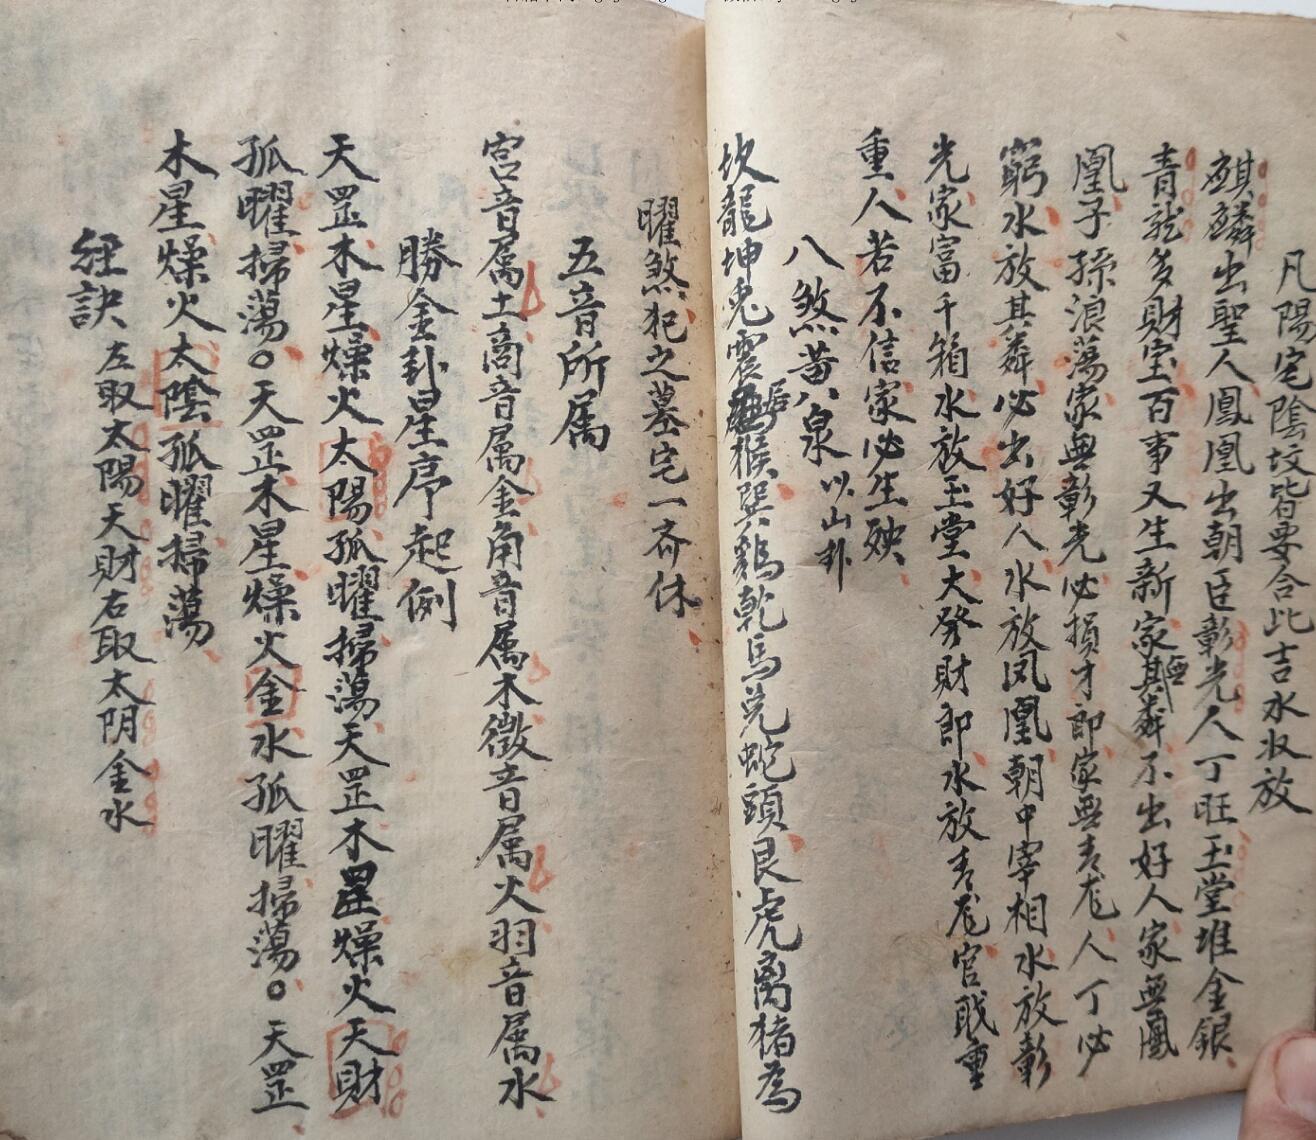 凡陽宅陰坟皆要合此吉水收放
麒麟出聖人鳳凰出朝臣彰光人丁旺玉堂堆金銀
青龍多財宝百事又生新家無其粦不出好人家無鳳
凰子孫浪蕩家無彰光必損才郎家無青龙人丁必
窮水放其粦必出好人水放凤凰朝中宰相水放彰
光家富千箱水放玉堂大発財郎水放青龙官戝重
重人若不信家必生殃
八煞黄八泉以山卦
坎龍坤兎震居猴巽鷄乾馬兌蛇頭艮虎离猪為
曜煞犯之墓宅一齐休
五音所属
宮音属土商音属金角音属木徵音属火羽音属水
勝金卦星序起例
天罡木星燥火太陽孤曜掃蕩天罡木星燥火天財
孤曜掃蕩○天罡木星燥火金水孤曜掃蕩○天罡
木星燥火太陰孤曜掃蕩
経訣左取太陽天財右取太阴金水